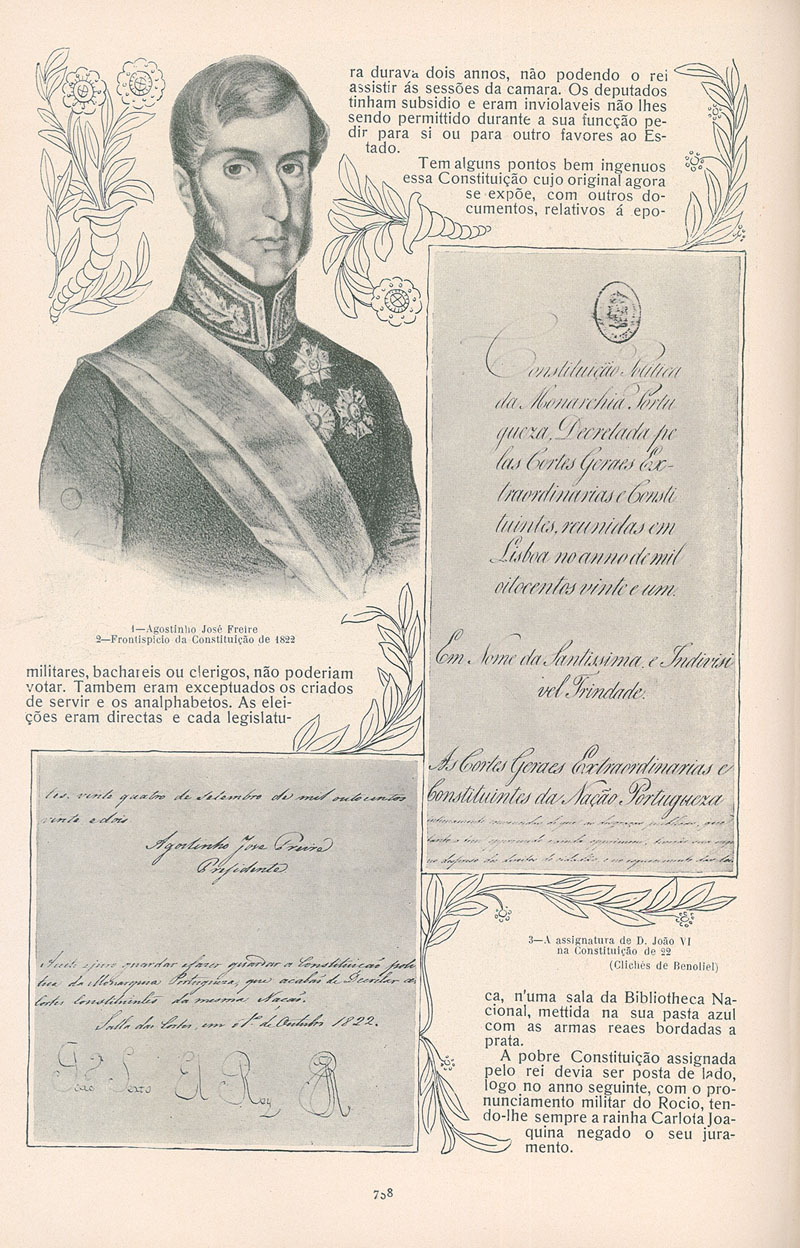 militares, bachareis ou clerigos, não poderiam
votar. Tambem eram exceptuados os criados
de servir e os analphabetos. As elei-
ções eram directas e cada legislatu-
ra durava dois annos, não podendo o rei
assistir ás sessões da camara. Os deputados
tinham subsidio e eram inviolaveis não lhes
sendo permittido durante a sua funcção pe-
dir para si ou para outro favores ao Es-
tado.
Tem alguns pontos bem ingenuos
essa Constituição cujo original agora
se expõe, com outros do-
cumentos, relativos á epo-
ca, n'uma sala da Bibliotheca Na-
cional, mettida na sua pasta azul
com as armas reaes bordadas a
prata.
A pobre Constituição assignada
pelo rei devia ser posta de lado,
logo no anno seguinte, com o pro-
nunciamento militar do Rocio, ten-
do-lhe sempre a rainha Carlota Joa-
quina negado o seu jura-
mento.
1—Agostinho José Freire
2—Frontispicio da Constituição de 1822
Constituição Politica
da Monarchia Portu
gueza, Decretada pe
las Cortes Geraes Ex-
traordinarias e Consti
tuintes, reunidas em
Lisboa no anno de mil
oitocentos vinte e um.
Em Nome da Santissima, e Indivisi
vel Trindade.
As Cortes Geraes Extraordinarias e
Constituintes da Nação Portugueza
tes. vinte quatro de Setembro de mil outocentos
vinte e dois
Agostinho Jose Freire
Presidente
guardar e fazer guardar a Constituição poli
tica da Monarquia Portugueza, que acabaõ de Decretar as
Cortes Constituintes da mesma Nacaõ.
Salla das Cortes, em 1º. de Outubro 1822.
João Sexto El Rey
3—A assignatura de D. João VI
na Constituição de 22
(Clichés de Benoliel)
738